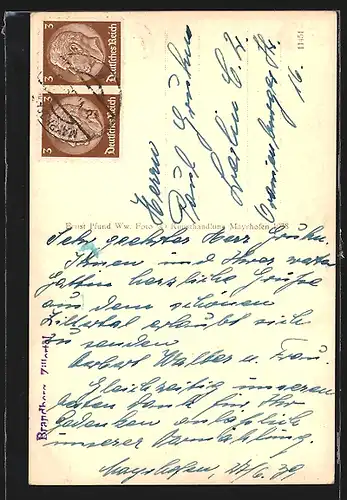 3 Deutsches Reich
3 Deutsches Reich
11451
Herrn
Paul Gruhn
Berlin C. 2.
Oranienburger Str.
16.
Ernst Pfund Ww. Foto Kunsthandlung Mayrhofen
Sehr geehrter Herr Gruhn.
Ihnen und Ihrer werten
Gattin herzliche Grüße
aus dem schönen
Zillertal erlaubt sich
zu senden
Herbert Walter u. Frau.
Gleichzeitig unseren
besten Dank für Ihr
Gedenken anläßlich
unserer Vermählung.
Mayrhofen, 17/6. 39
Brandberg, Zillertal